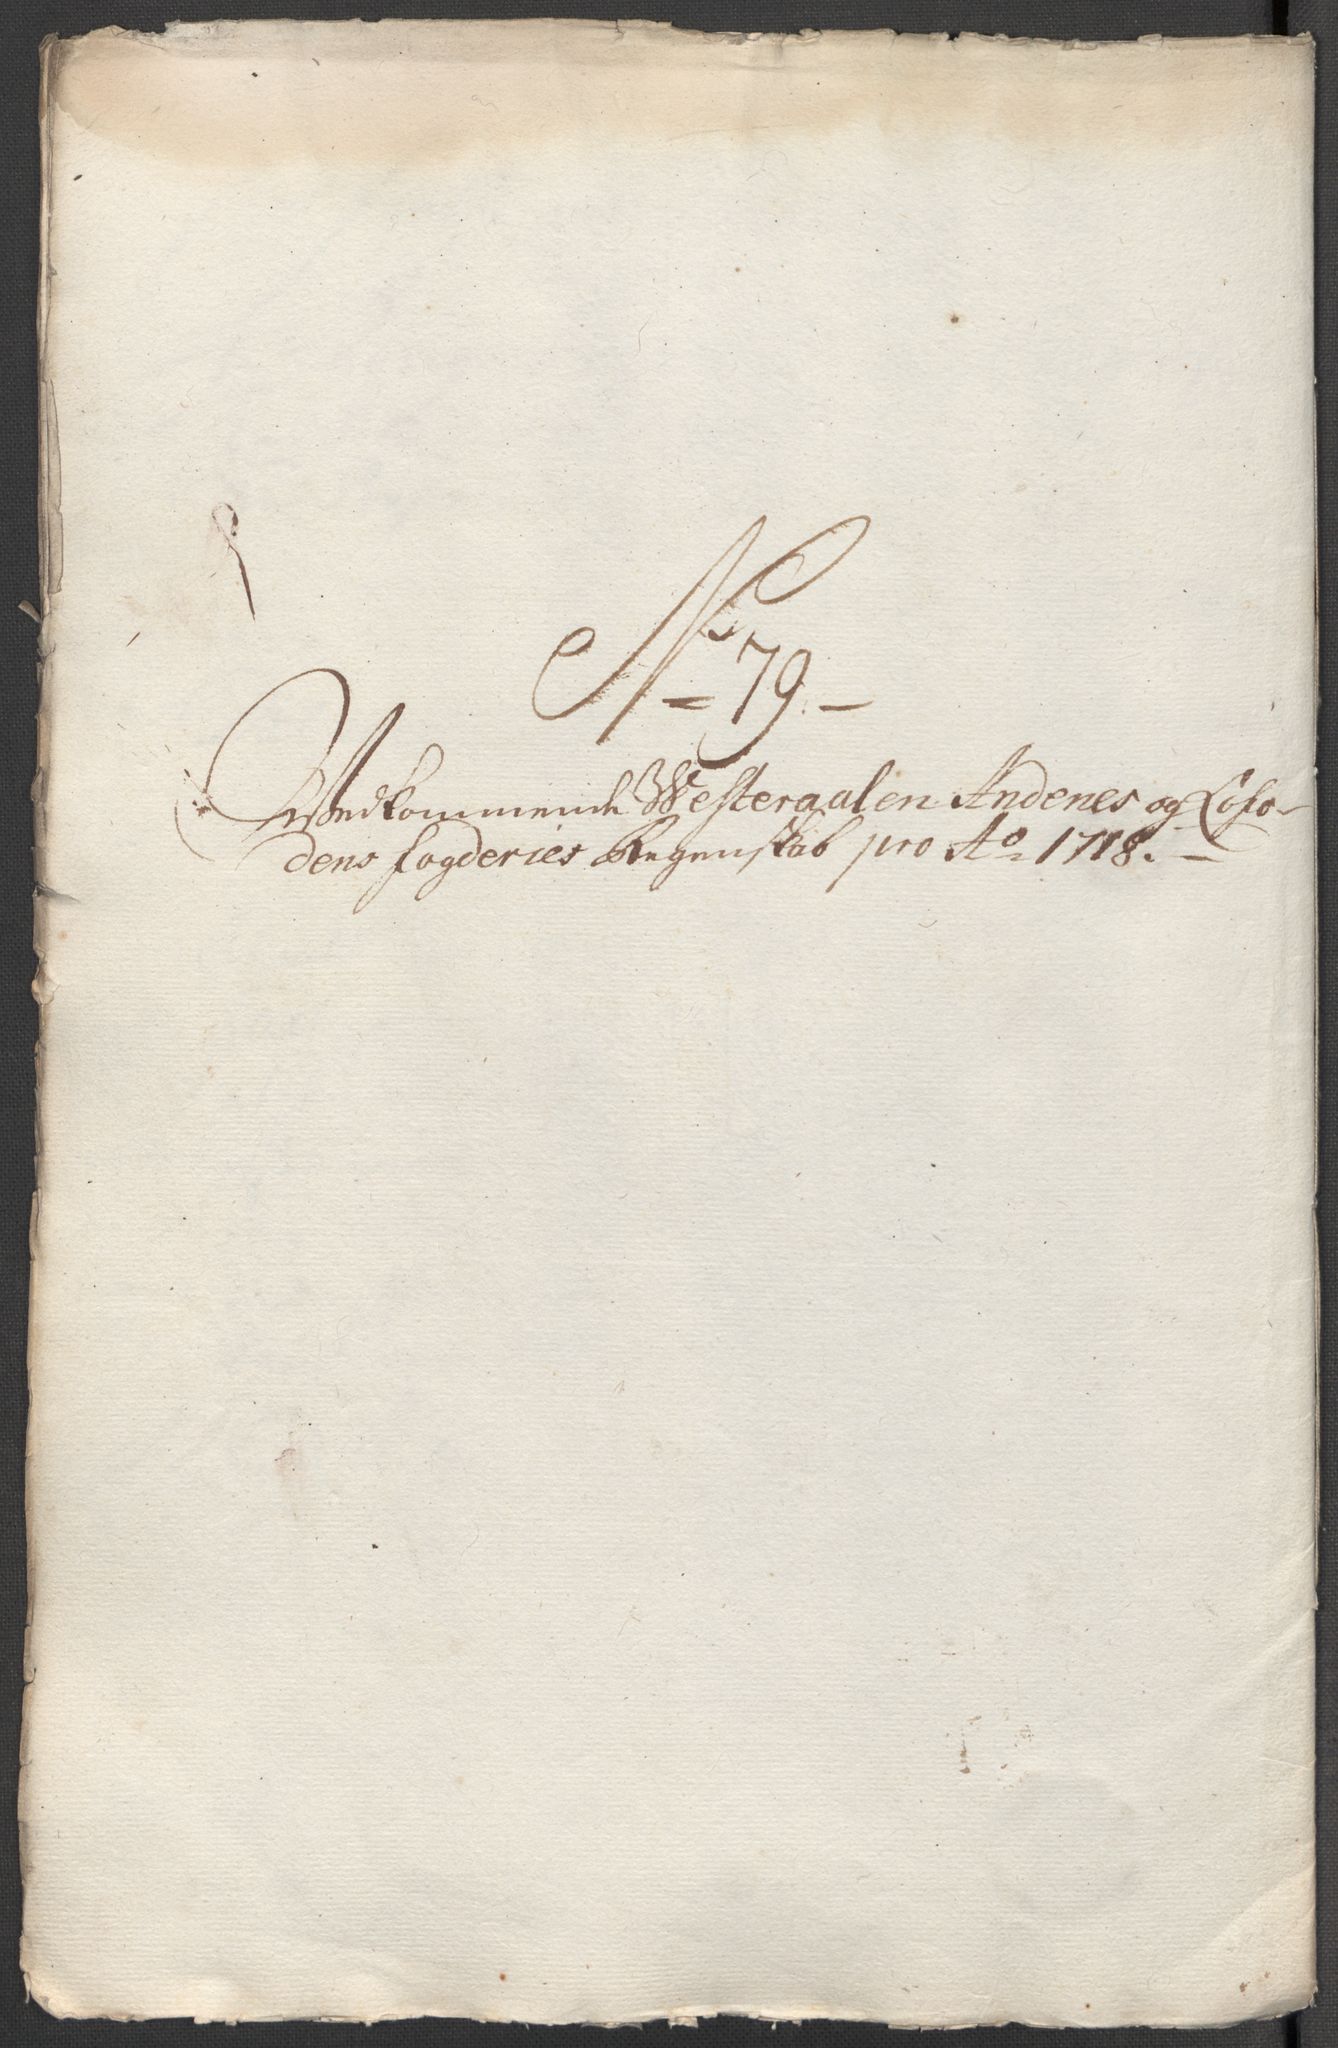 No 79.
Vedkommende Westeraalen Andenes og Lofo-
dens fogderies Regenskab pro Ao 1718.